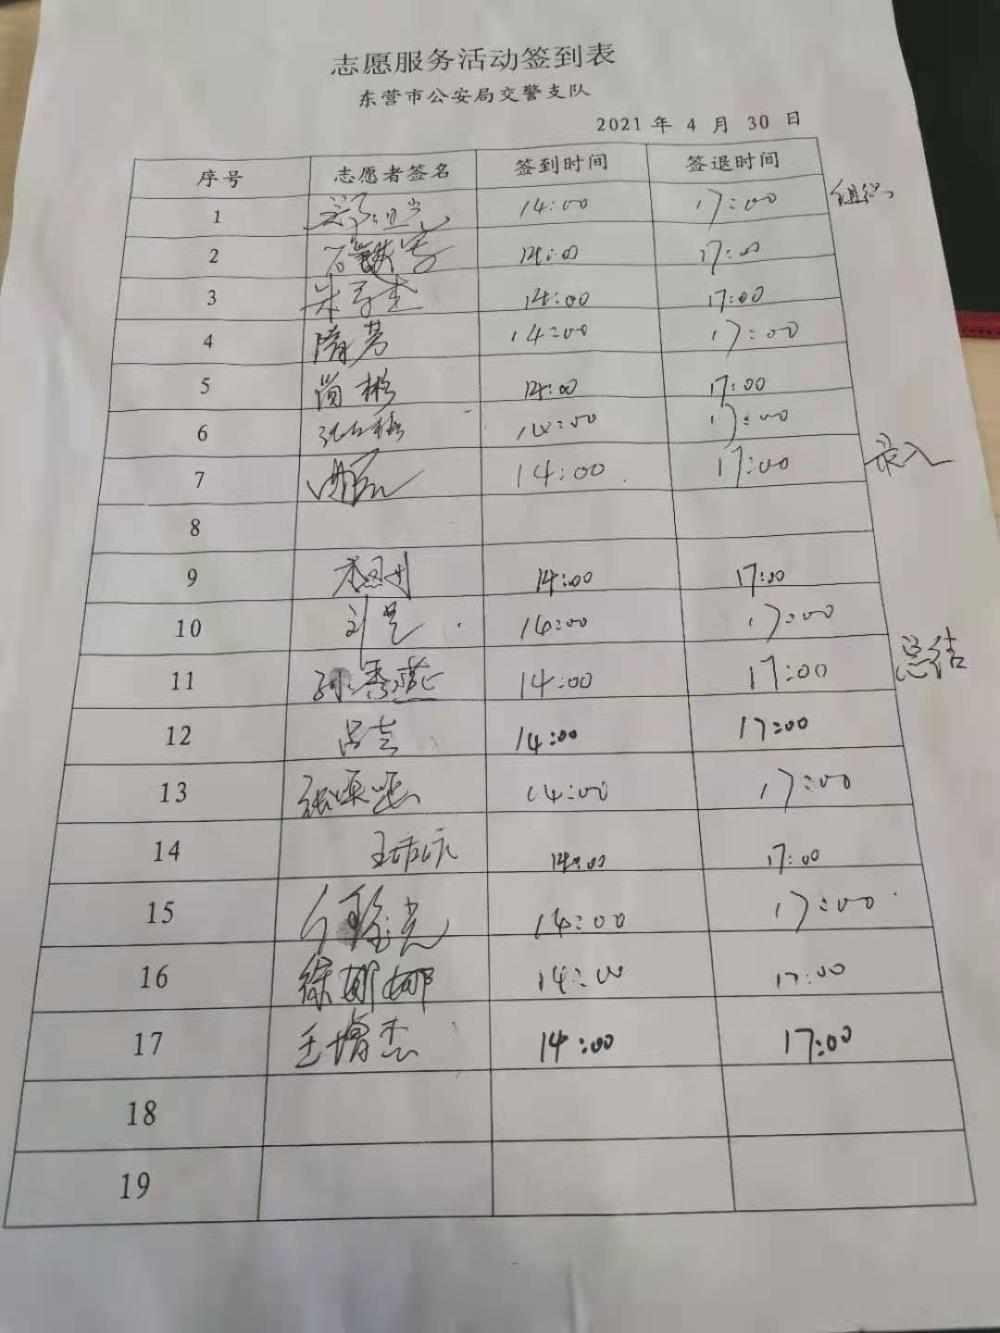 志愿服务活动签到表
东营市公安局交警支队
2021 年 4 月 30 日
序号 志愿者签名 签到时间 签退时间
1 14:00 17:00 组织
2 14:00 17:00
3 14:00 17:00
4 隋芳 14:00 17:00
5 尚彬 14:00 17:00
6 14:00 17:00
7 14:00 17:00 录入
8
9 14:00 17:00
10 14:00 17:00
11 孙秀燕 14:00 17:00 总结
12 吕志 14:00 17:00
13 14:00 17:00
14 14:00 17:00
15 14:00 17:00
16 徐娜娜 14:00 17:00
17 王增杰 14:00 17:00
18
19